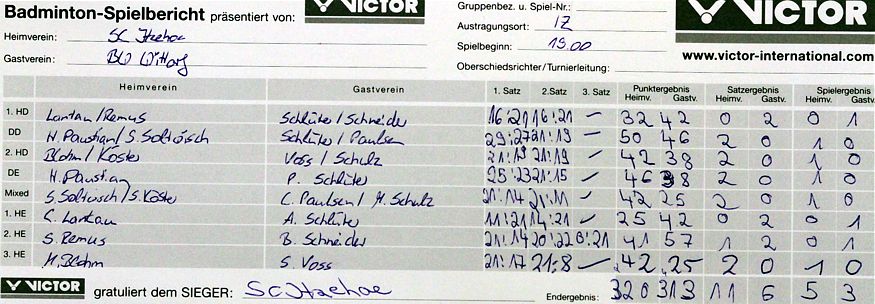 Badminton-Spielbericht präsentiert von: VICTOR Gruppenbez. u. Spiel-Nr.: VICTOR
Heimverein: SC Itzehoe Austragungsort: IZ
Gastverein: BW Wittorf Spielbeginn: 15.00 www.victor-international.com
Oberschiedsrichter/Turnierleitung:
Heimverein Gastverein 1. Satz 2. Satz 3. Satz Punktergebnis Satzergebnis Spielergebnis
Heimv. Gastv. Heimv. Gastv. Heimv. Gastv.
1. HD Lantau/Remus Schlüter/Schneider 16:21 16:21 – 32 42 0 2 0 1
DD H. Paustian/S. Soltwisch Schlüter/Paulsen 29:27 21:19 – 50 46 2 0 1 0
2. HD Blohm/Köster Voss/Schulz 21:19 21:19 – 42 38 2 0 1 0
DE H. Paustian P. Schlüter 25:23 21:15 – 46 38 2 0 1 0
Mixed S. Soltwisch/S. Köster C. Paulsen/M. Schulz 21:14 21:11 – 42 25 2 0 1 0
1. HE C. Lantau A. Schlüter 11:21 14:21 – 25 42 0 2 0 1
2. HE S. Remus B. Schneider 21:14 20:22 0:21 41 57 1 2 0 1
3. HE M. Blohm S. Voss 21:17 21:8 – 42 25 2 0 1 0
VICTOR gratuliert dem SIEGER: SC Itzehoe Endergebnis: 320 313 11 6 5 3